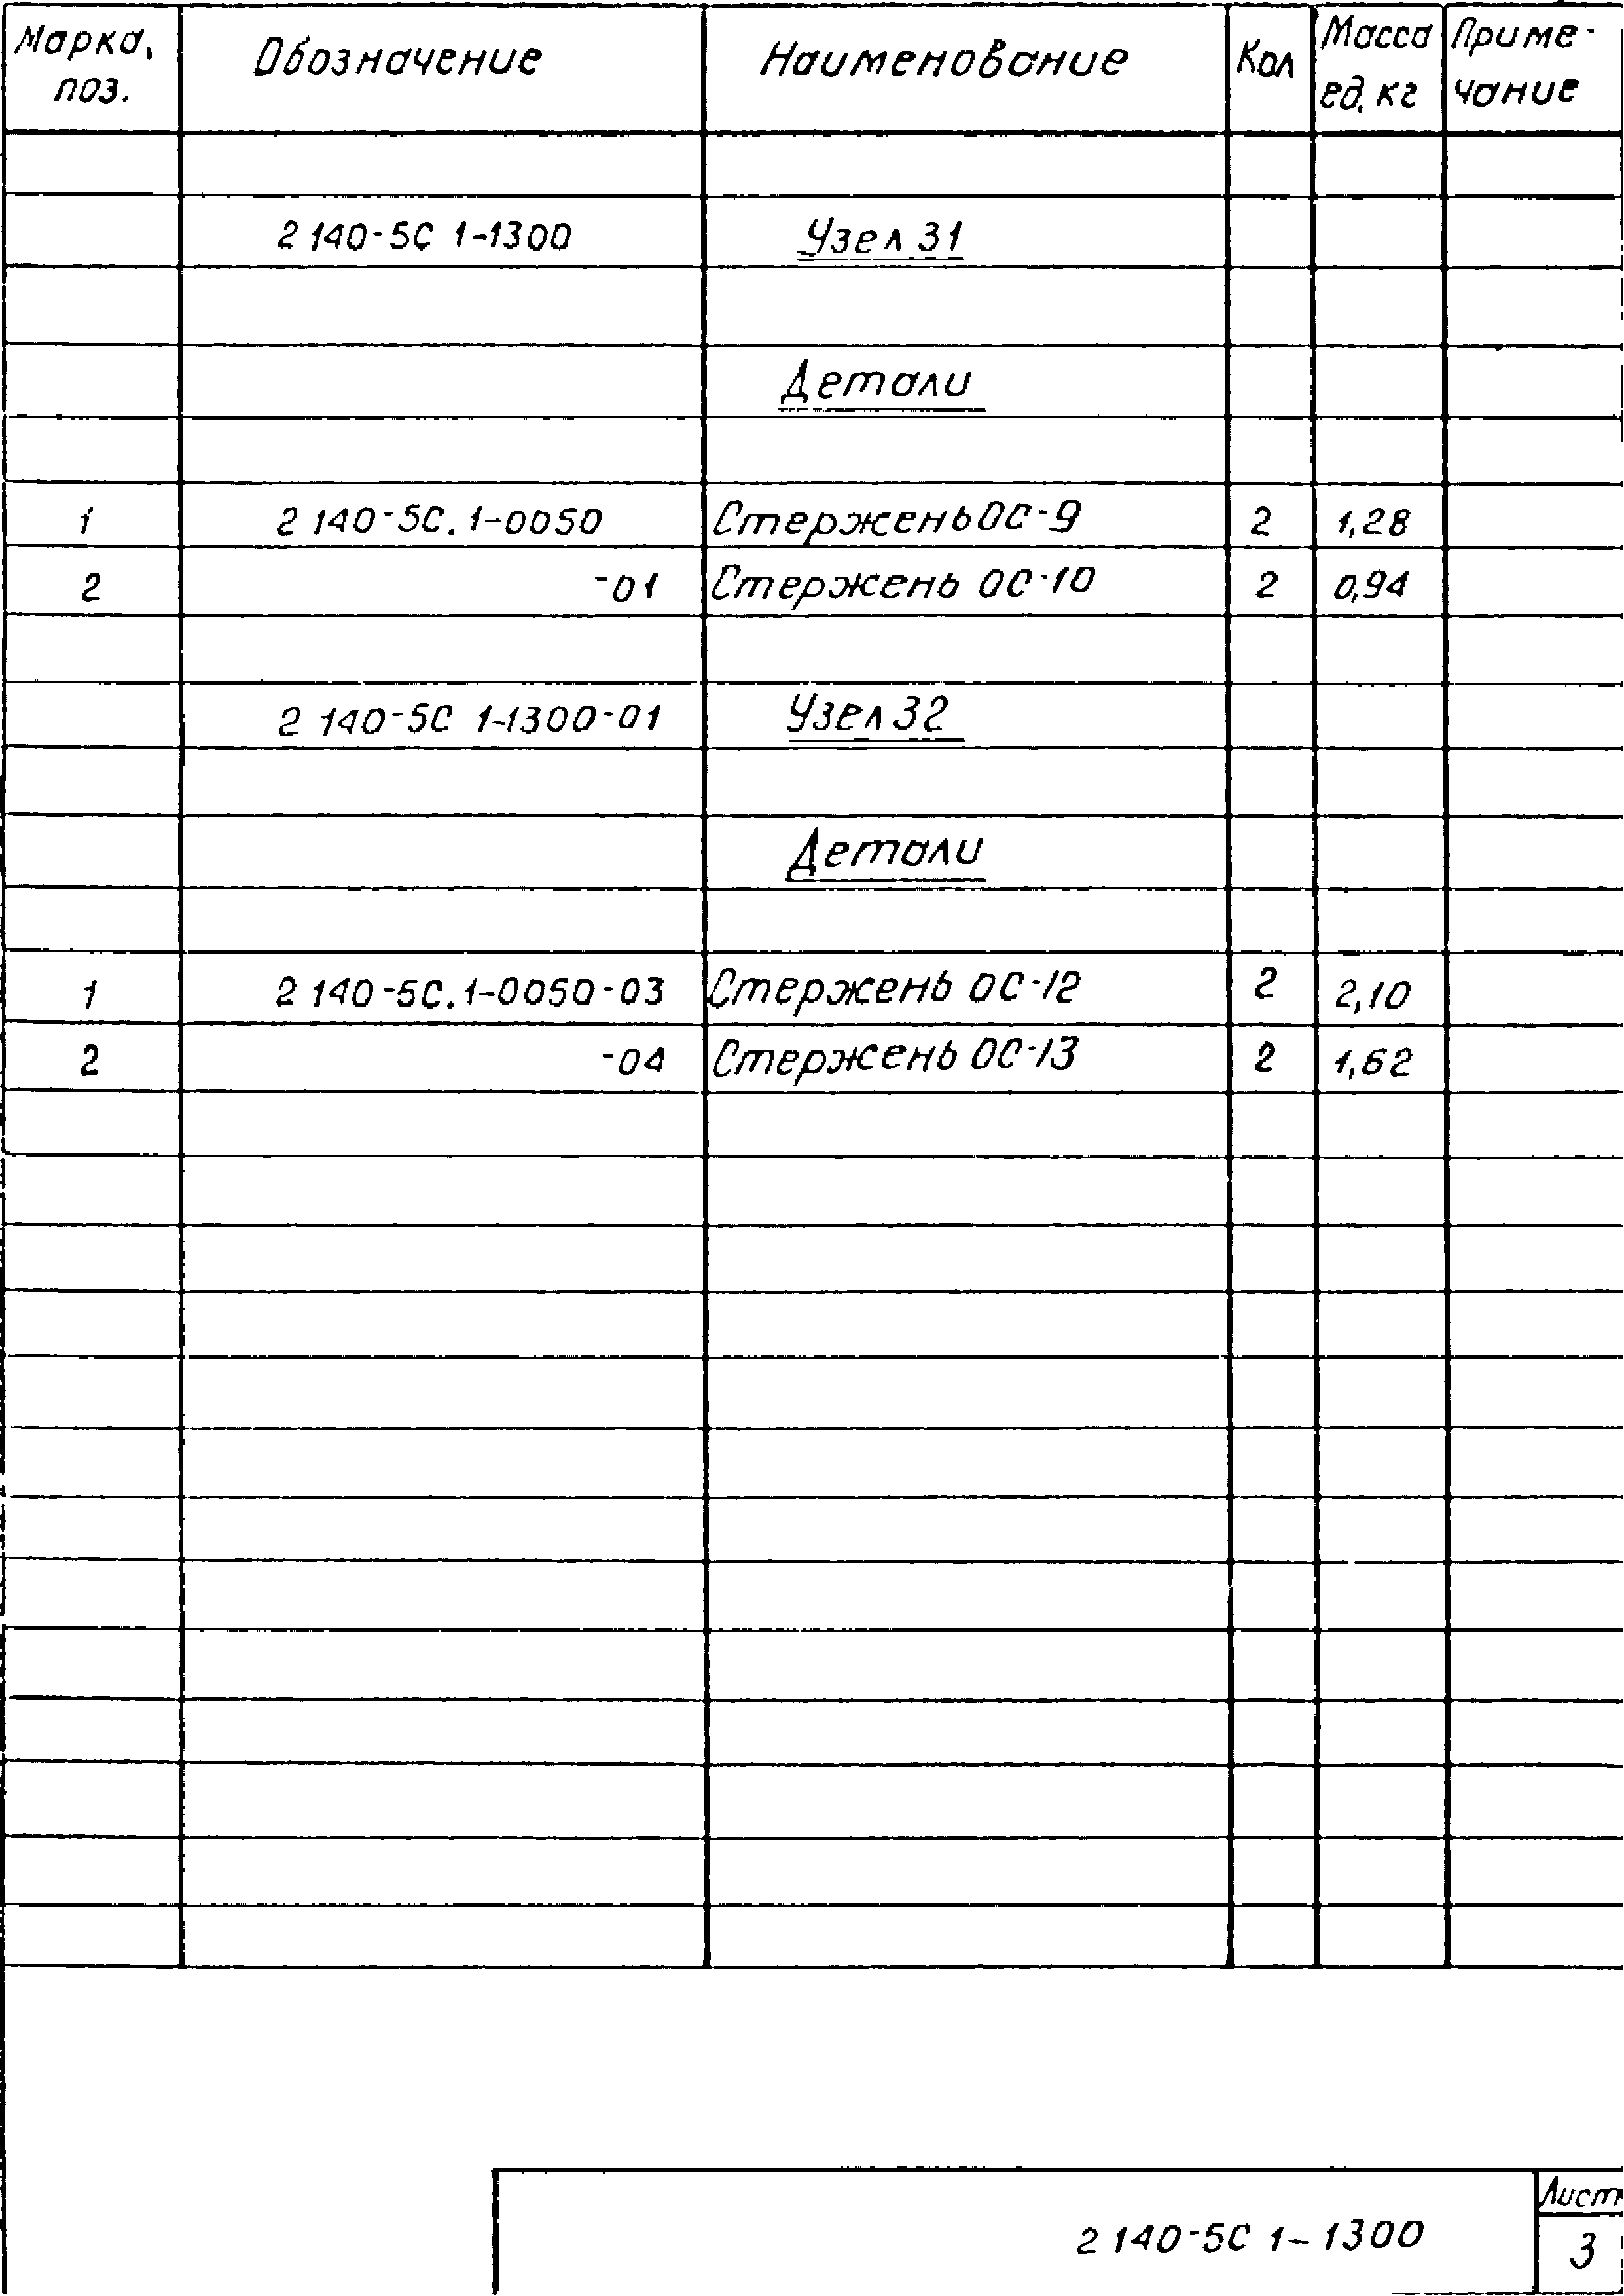 Марка, Обозначение Наименование Кол Масса Приме-
поз. ед, кг чание
2 140-5С 1-1300 Узел 31
Детали
1 2 140-5С. 1-0050 Стержень ОС-9 2 1,28
2 -01 Стержень ОС-10 2 0,94
2 140-5С 1-1300-01 Узел 32
Детали
1 2 140-5С. 1-0050-03 Стержень ОС-12 2 2,10
2 -04 Стержень ОС-13 2 1,62
Лист
2 140-5С 1-1300 3